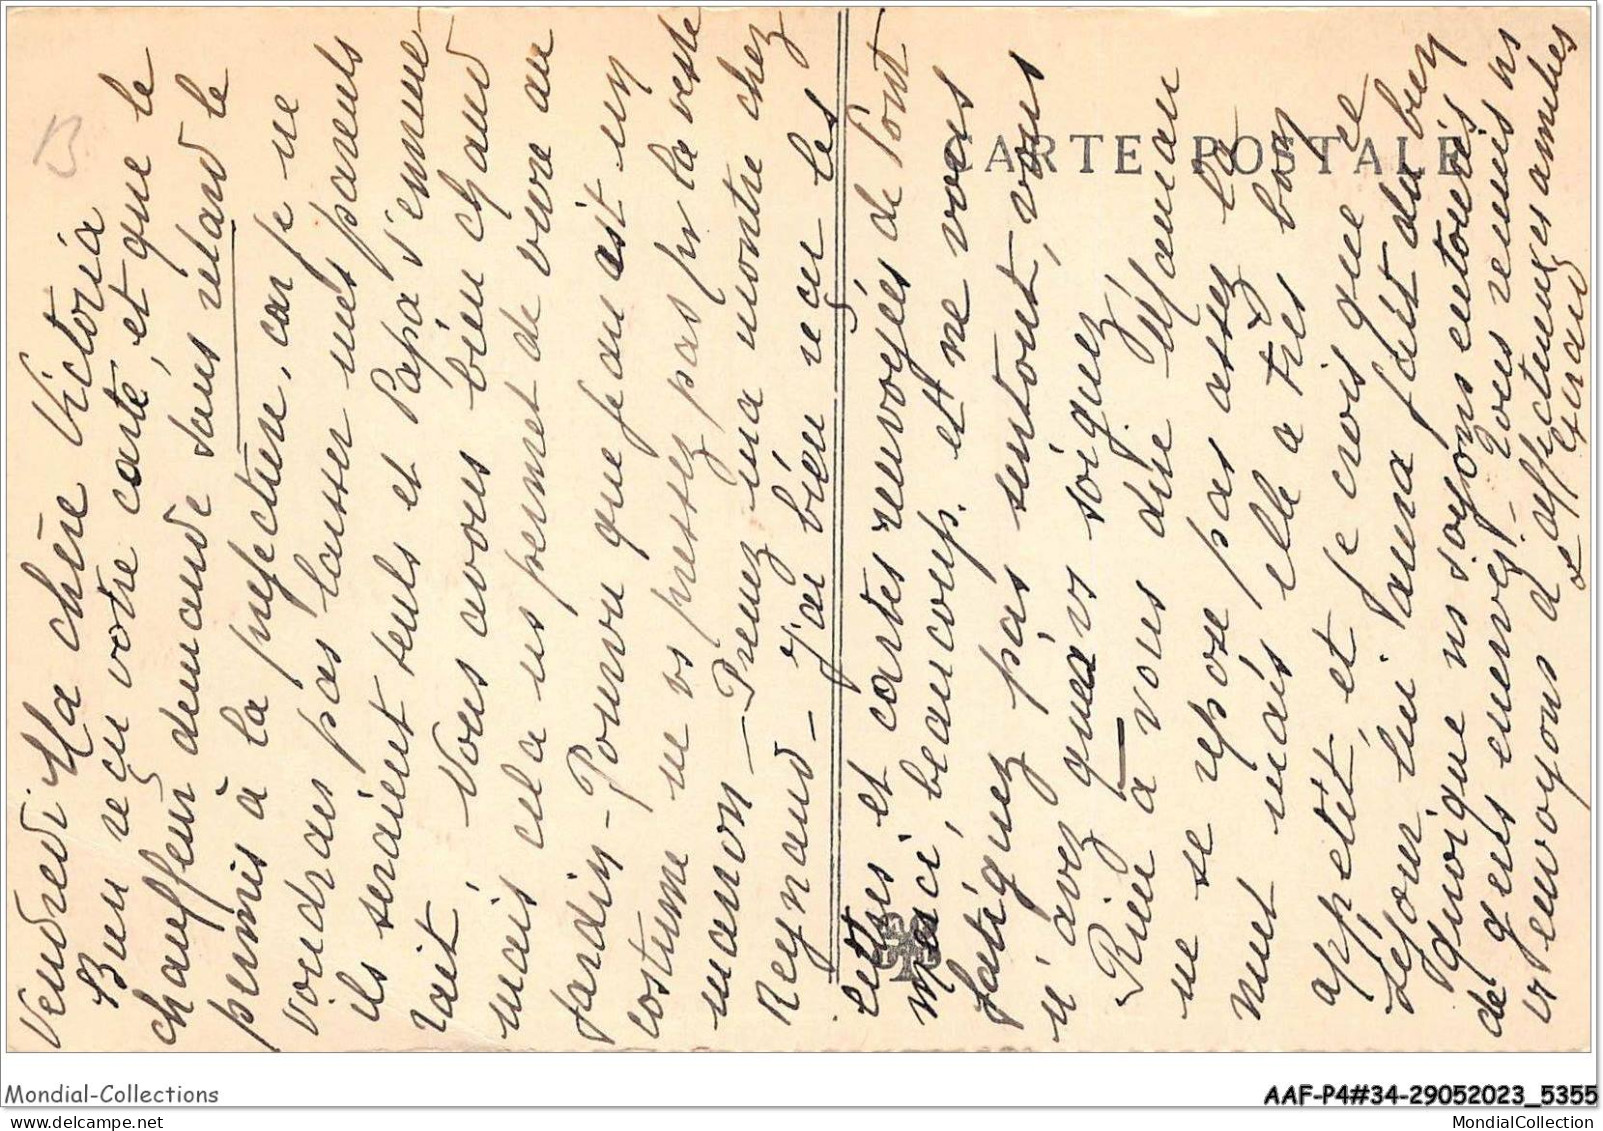 Vendredi Ma chère Victoria
Bien reçu votre carte, et que le
chauffeur demande sans retard le
permis à la préfecture, car je ne
voudrais pas laisser mes parents
ils seraient seuls et Papa s'ennuie
rait. Nous avons bien chaud
mais cela ns permet de vivre au
jardin - Pourvu que Jean ait un
costume ne vs pressez pas pr la veste
marron - Prenez ma montre chez
Reynaud - J'ai bien reçu les
lettres et cartes renvoyées de Pont
merci, beaucoup. et ne vous
fatiguez pas surtout, vous
n'avez que vs soignez
Rien à vous dire Maman
ne se repose pas assez la
nuit mais elle a très bon
appétit, et je crois que ce
séjour lui aura fait du bien
quoique ns soyons entourés
de gens énervés - Nous réunis ns
vs envoyons d'affectueuses amitiés
CARTE POSTALE
B
Mondial-Collections
AAF-P4#34-29052023_5355
MondialCollection